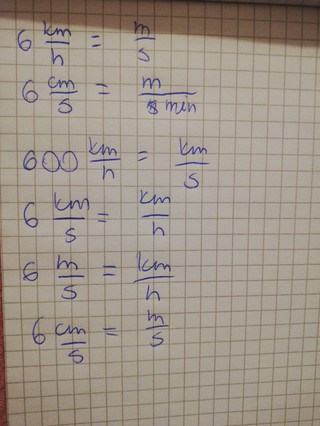 6 km/h = m/s
6 cm/s = m/min
600 km/h = km/s
6 km/s = km/h
6 m/s = km/h
6 cm/s = m/s